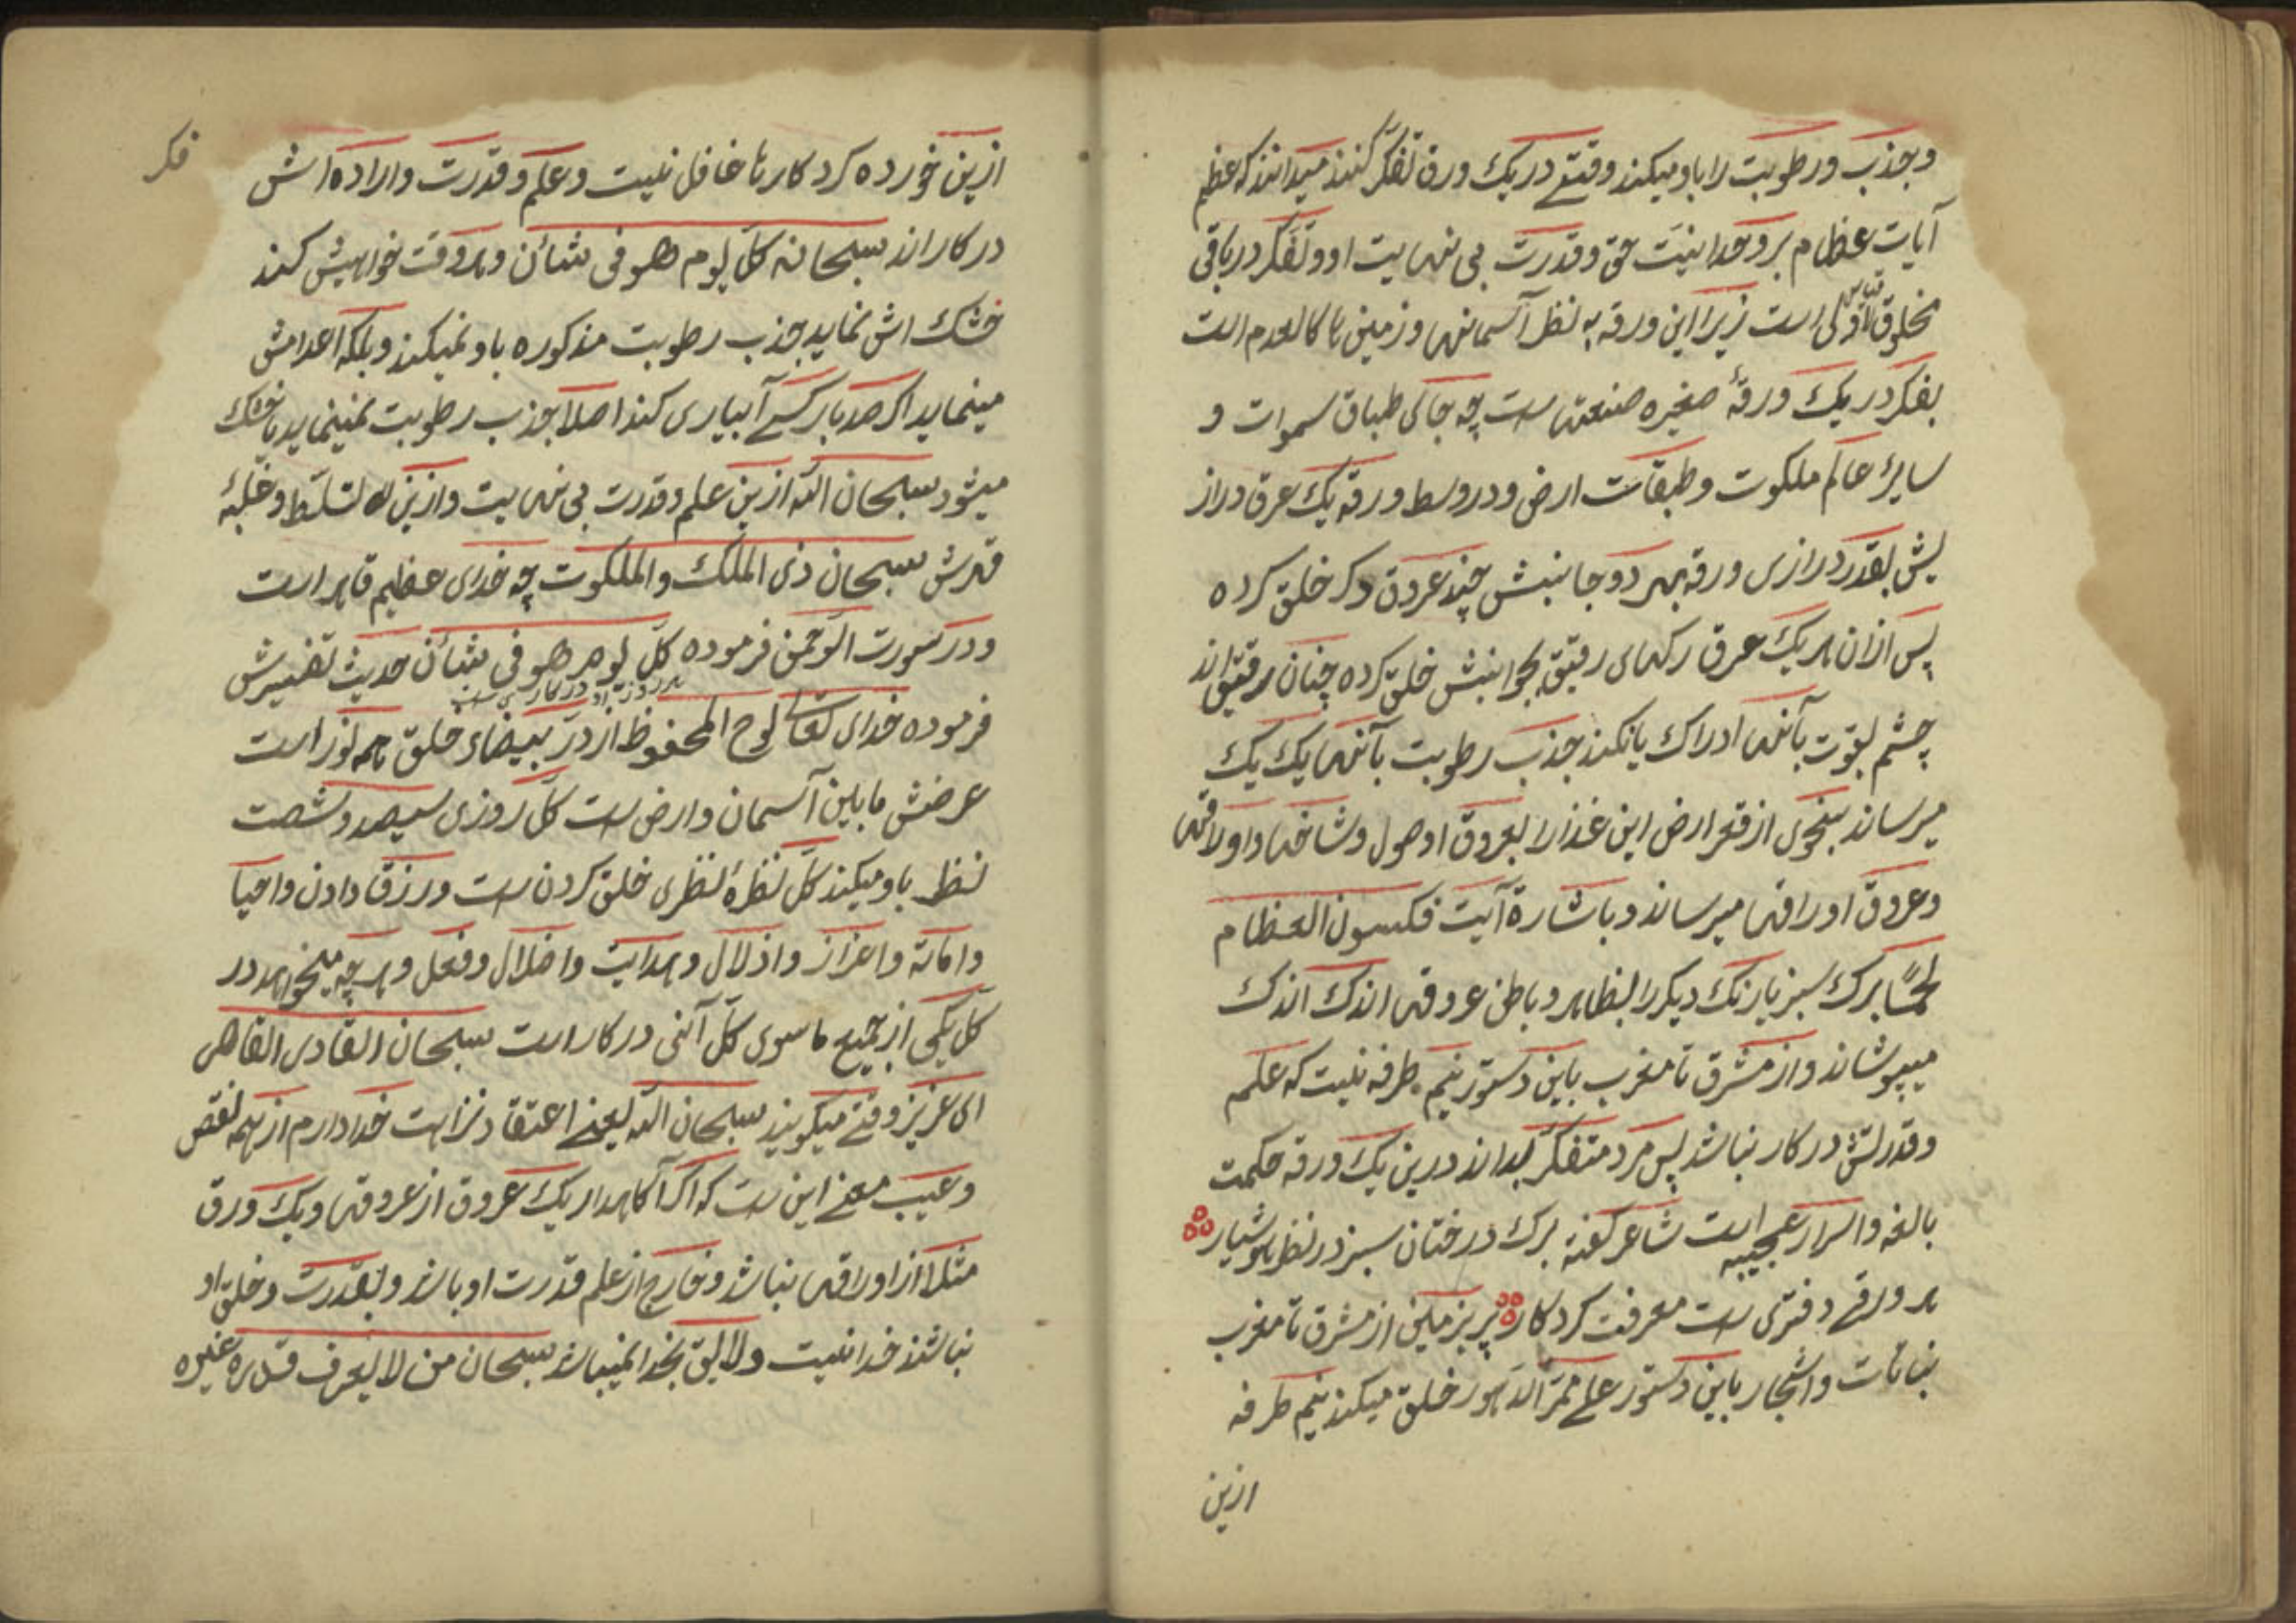 وجذب ورطوبت را باو میکند وقتے در یک ورق تفکّر کنند میدانند که عظیم
آیات عظام بر وحدانیّت حق وقدرت بی نهایت او وتفکر در باقی
مخلوق اولی است زیرا این ورقه به نظر آسمانها وزمین ها کالعدم است
بفکر در یک ورقهٔ صغیره صنعتها ست چه جای طباق سموات و
سایرٔ عالم ملکوت وطبقات ارض ودر وسط ورقه یک عرق دراز
بقدر درازی ورقه بهر دو جانبش چند عروق دکر خلق کرده
پس ازان هر یک عرق رکهای رقیق بجوانبش خلق کرده چنان رقیق اند
چشم بقوّت بآنها ادراک یا نکند جذب رطوبت بآنها یک یک
میرساند بنحوی از قعر ارض این غذا را بعروق اوصول وشاخها واوراقها
وعروق اوراقها میرساند وباشارة آیت فکسون العظام
لحمًا برک سبز یا رنک دیکر را بظاهر وباطن عروقها اندک اندک
میپوشاند واز مشرق تا مغرب باین دستور نیم طرفه نیست که علم
وقدرتش در کار نباشد پس مرد متفکّر بداند درین یک ورقه حکمت
بالغه واسرار عجیبه است شاعر کفته برک درختان سبز در نظر هوشیار
هر ورقے دفتری ست معرفت کردکار پر بزمین از مشرق تا مغرب
نباتات واشجار باین دستور علے ممرّ الدّهور خلق میکند نیم طرفه
ازین
فکر
ازین خورده کرد کارها غافل نیست وعلم وقدرت واراده اش
در کار اند سبحانه کل یوم هو فی شأن وهر وقت خواهیش کند
خشک اش نماید جذب رطوبت مذکوره باو نمیکند وبلکه اعدامش
مینماید اکر صد بار کسے آبیاری کند اصلا جذب رطوبت نمینماید یا خشک
میشود سبحان اللّه ازین علم وقدرت بی نهایت وازین تسلّط وغلبهٔ
قهرش سبحان ذی الملک والملکوت چه خدای عظیم قاهر است
ودر سورت الرّحمن فرموده کلّ یوم هو فی شأن حدیث تفسیرش
هر روز او در کاری ست
فرموده خدای تعالی لوح المحفوظ از درّ بیضاء خلق نور است
عرضش ما بین آسمان وارض ست کلّ روزی سیصد وشصت
نظر باو میکند کلّ نظرهٔ نظری خلق کردن ست ورزق دادن واحیا
واماتة واعزاز واذلال وهدایت واضلال وفعل وهر چه میخواهد در
کلّ یکی از جمیع ما سوی کلّ آنی در کار است سبحان القادر القاهر
ای عزیز وقتے میکویند سبحان اللّه یعنے اعتقاد نزاهت خدا دارم از همه نقص
وعیب معنے این ست که اکر آکاهدار یک عروق از عروقها ویک ورق
مثلا از اوراقها نباشد وخارج از علم قدرت او باشد وبقدرت وخلق او
نباشند خدا نیست ولایق بخدا نمیباشد سبحان من لا یعرف قدره غیره